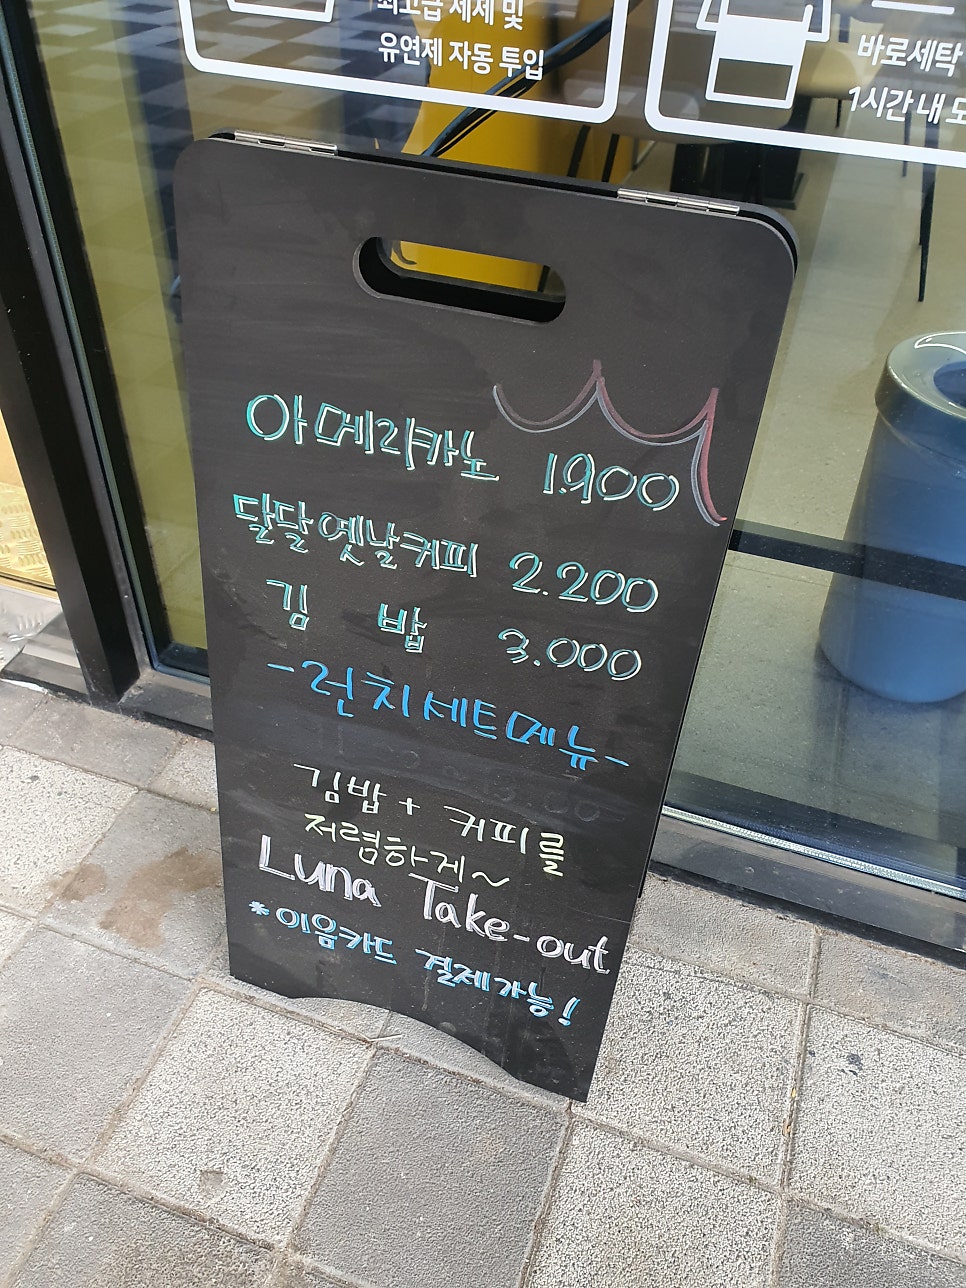 최고급 세제 및
유연제 자동 투입
바로세탁
1시간 내
아메리카노 1.900
달달옛날커피 2.200
김 밥 3.000
-런치세트메뉴-
김밥 + 커피를
저렴하게~
Luna Take-out
*이음카드 결제가능!